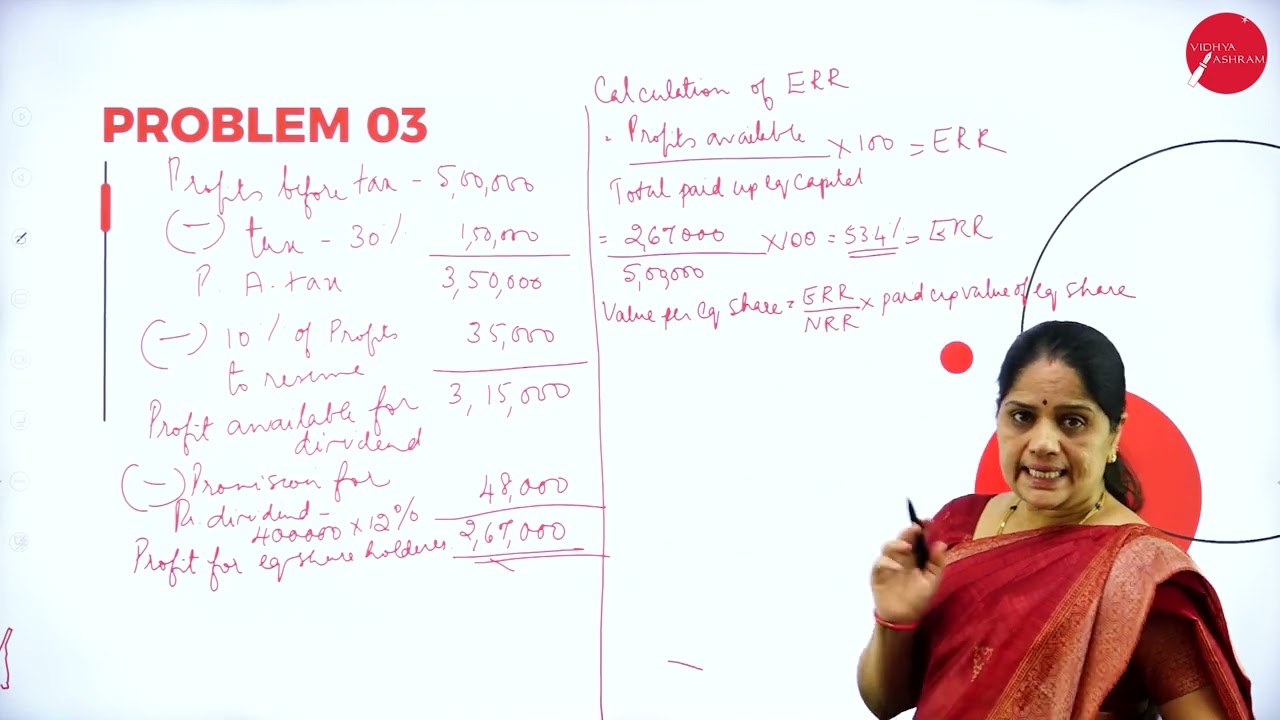 VIDHYA
ASHRAM
PROBLEM 03
Profits before tax - 5,00,000
(-) tax - 30% 1,50,000
P. A. tax 3,50,000
(-) 10% of Profits 35,000
to reserve
Profit available for 3,15,000
dividend
(-) Provision for 48,000
Pr. dividend -
400000 x 12%
Profit for eq share holders 2,67,000
Calculation of ERR
= Profits available x 100 = ERR
Total paid up eq capital
= 2,67000 x 100 = 53.4% = ERR
5,00,000
Value per eq share = ERR x paid up value of eq share
NRR